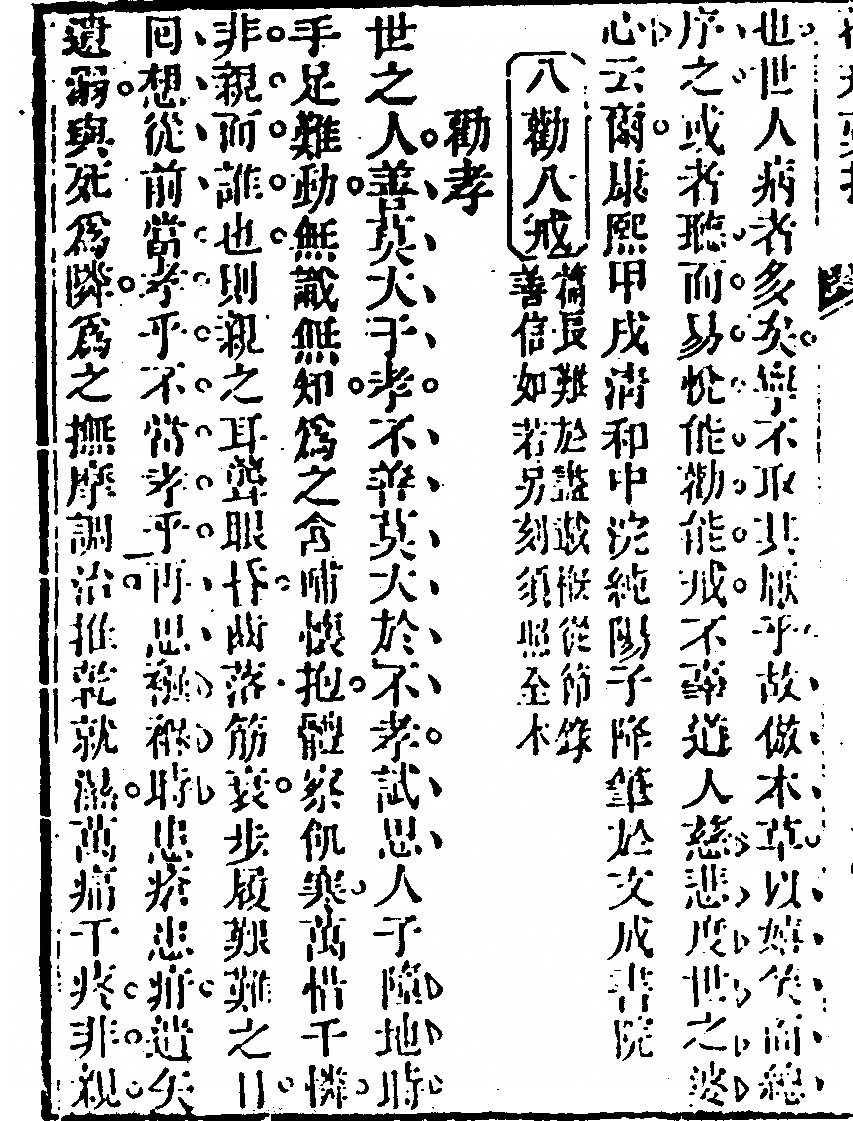 也世人病者多矣寧不取其厭乎故倣本草以嬉笑而總
序之或者聽而易悅能勸能戒不辜道人慈悲度世之婆
心云爾康熙甲戌清和中浣純陽子降筆於文成書院
八勸八戒
篇長難於謄鼓概從節錄
善信如若另刻須照全本
勸孝
世之人善莫大于孝不善莫大於不孝試思人子墮地時
手足難動無識無知爲之含哺懷抱體察飢寒萬惜千憐
非親而誰也則親之耳聾眼昏齒落筋衰步履艱難之日
回想從前當孝乎不當孝乎再思襁褓時患瘡患疳遺矢
遺溺與死爲隣爲之撫摩調治推乾就濕萬痛千疼非親